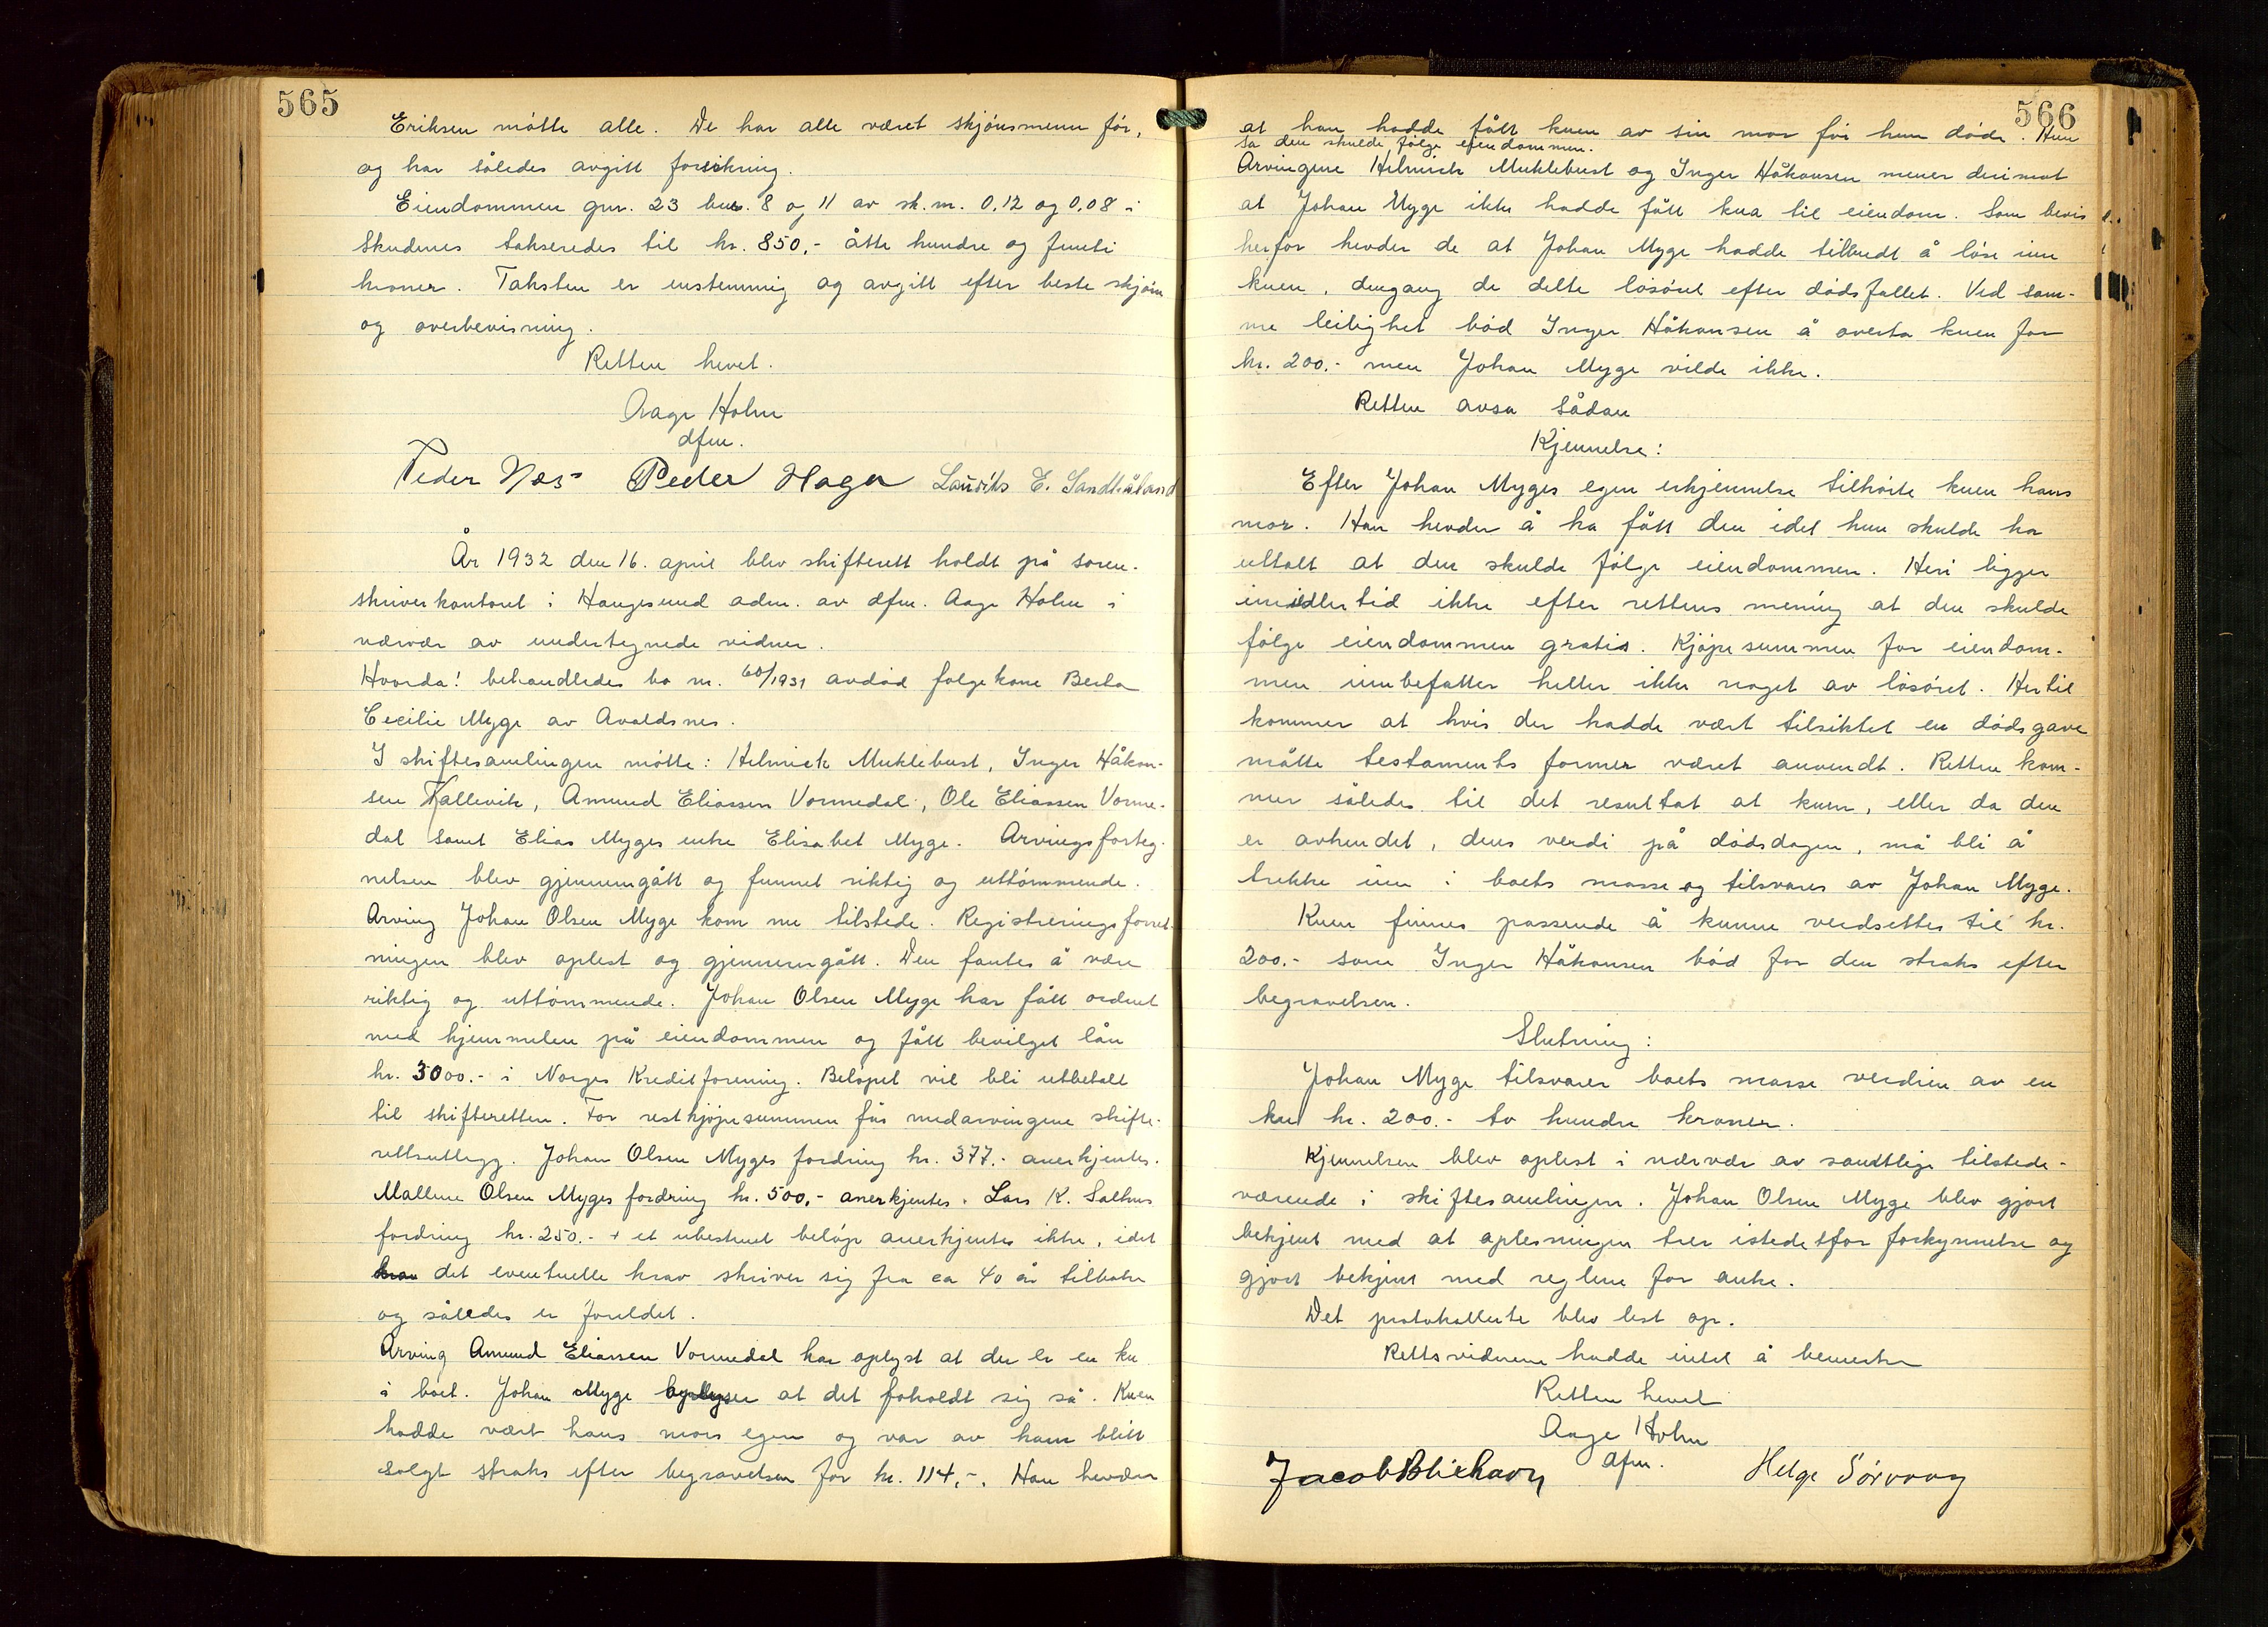 565
Eriksen møtte alle. De har alle været skjønsmenn før,
og har således avgitt forsikring.
Eiendommen gnr. 23 bnr. 8 og 11 av sk.m. 0,12 og 0,08 i
Skudenes takseredes til kr. 850,- åtte hundre og femti
kroner. Taksten er enstemmig og avgitt efter beste skjønn
og overbevisning.
Retten hevet.
Aage Holm
dfm.
Peder Næs Peder Haga Lauritz E. Sandhåland
År 1932 den 16. april blev skifterett holdt på soren-
skriverkontoret i Haugesund adm. av dfm. Aage Holm i
nærvær av undertegnede vidner.
Hvorda! behandledes bo nr. 60/1931 avdød følgekone Berta
Cecilie Myge av Avaldsnes.
I skiftesamlingen møtte: Helmick Muklebust, Inger Håkon-
sen Kallevik, Amund Eliassen Vormedal, Ole Eliassen Vorme-
dal samt Elias Myges enke Elisabet Myge. Arvingsforteg-
nelsen blev gjennemgått og funnet riktig og uttømmende.
Arving Johan Olsen Myge kom nu tilstede. Registreringsforret-
ningen blev oplest og gjennemgått. Den fantes å være
riktig og uttømmende. Johan Olsen Myge har fått ordnet
med hjemmelen på eiendommen og fått bevilget lån
kr. 3000.- i Norges Kreditforening. Beløpet vil bli utbetalt
til skifteretten. For restkjøpesummen får medarvingene skifte-
rettsutlegg. Johan Olsen Myges fordring kr. 377.- anerkjentes.
Malline Olsen Myges fordring kr. 500,- anerkjentes. Lars K. Salhus
fordring kr. 250.- + et ubestemt beløp anerkjentes ikke, idet
krav det eventuelle krav skriver sig fra ca 40 år tilbake
og således er foreldet.
Arving Amund Eliassen Vormedal har oplyst at der er en ku
i boet. Johan Myge oplyser at det foholdt sig så. Kuen
hadde vært hans mors egen og var av ham blitt
solgt straks efter begravelsen for kr. 114,-. Han hevder
566
at han hadde fått kuen av sin mor før hun døde. Hun
sa den skulde følge eiendommen.
Arvingene Helmick Muklebust og Inger Håkonsen mener derimot
at Johan Myge ikke hadde fått kua til eiendom. Som bevis
herfor hevder de at Johan Myge hadde tilbudt å løse inn
kuen, dengang de delte løsøret efter dødsfallet. Ved sam-
me leilighet bød Inger Håkonsen å overta kuen for
kr. 200.- men Johan Myge vilde ikke.
Retten avsa sådan
Kjennelse:
Efter Johan Myges egen erkjennelse tilhørte kuen hans
mor. Han hevder å ha fått den idet hun skulde ha
uttalt at den skulde følge eiendommen. Heri ligger
imidlertid ikke efter rettens mening at den skulde
følge eiendommen gratis. Kjøpesummen for eiendom-
men innbefatter heller ikke noget av løsøret. Hertil
kommer at hvis der hadde vært tilsiktet en dødsgave
måtte testaments former været anvendt. Retten kom-
mer således til det resultat at kuen, eller da den
er avhendet, dens verdi på dødsdagen, må bli å
trekke inn i boets masse og tilsvares av Johan Myge.
Kuen finnes passende å kunne verdsettes til kr.
200.- som Inger Håkonsen bød for den straks efter
begravelsen.
Slutning:
Johan Myge tilsvarer boets masse verdien av en
ku kr. 200.- to hundre kroner.
Kjennelsen blev oplest i nærvær av samtlige tilstede-
værende i skiftesamlingen. Johan Olsen Myge blev gjort
bekjent med at oplesningen trer istedetfor forkynnelse og
gjort bekjent med reglene for anke.
Det protokollerte blev lest op.
Rettsvidnene hadde intet å bemerke
Retten hevet
Aage Holm
dfm.
Jacob Helge Sørvaag